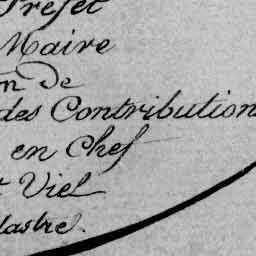 Préfet
Maire
on de
des Contribution
en Chef
t Viel
dastre.